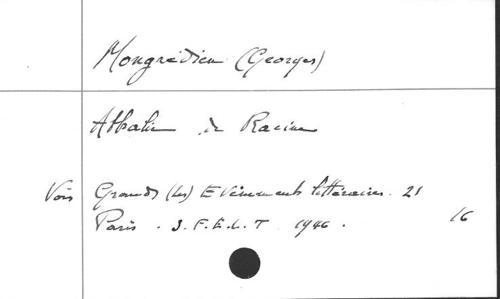 Mongrédien (Georges)
Athalie de Racine
Voir Grands (les) Evènements littéraires. 21
Paris. S.F.E.L.T. 1946. 16